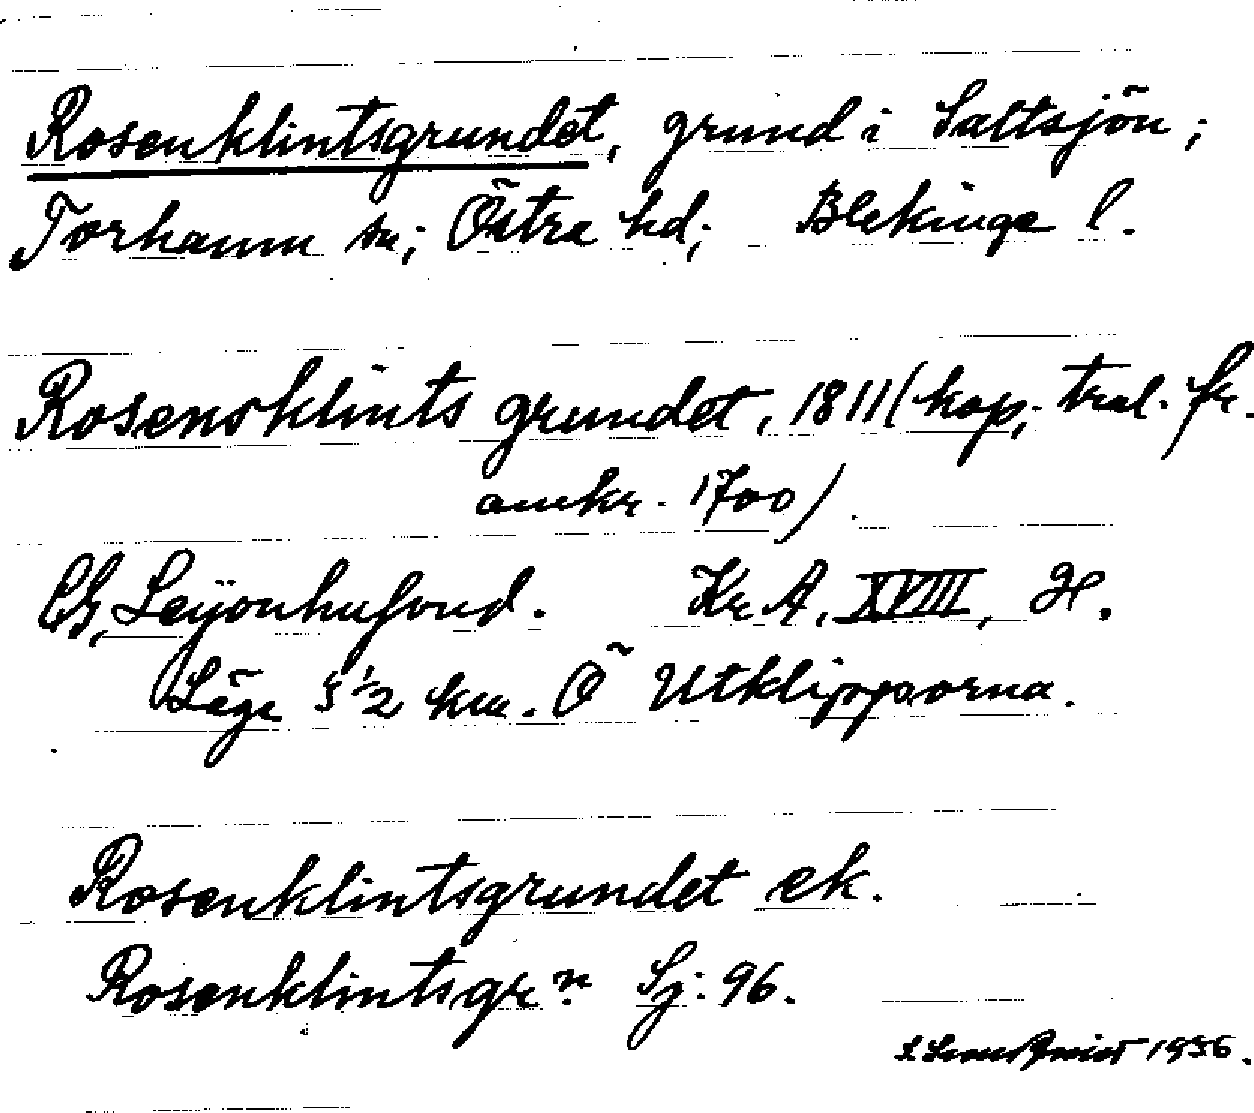 Rosenklintsgrundet, grund i Saltsjön;
Torhamn sn; Östra hd; Blekinge l.
Rosensklints grundet, 1811 (kop, tral. fr.
omkr. 1700)
Ch, Leijonhufvud. Kr. A, XVIII, H.
Läge 5 1/2 km. Ö Utklipporna.
Rosenklintsgrundet ek.
Rosenklintsgrn. Sj: 96.
1956.